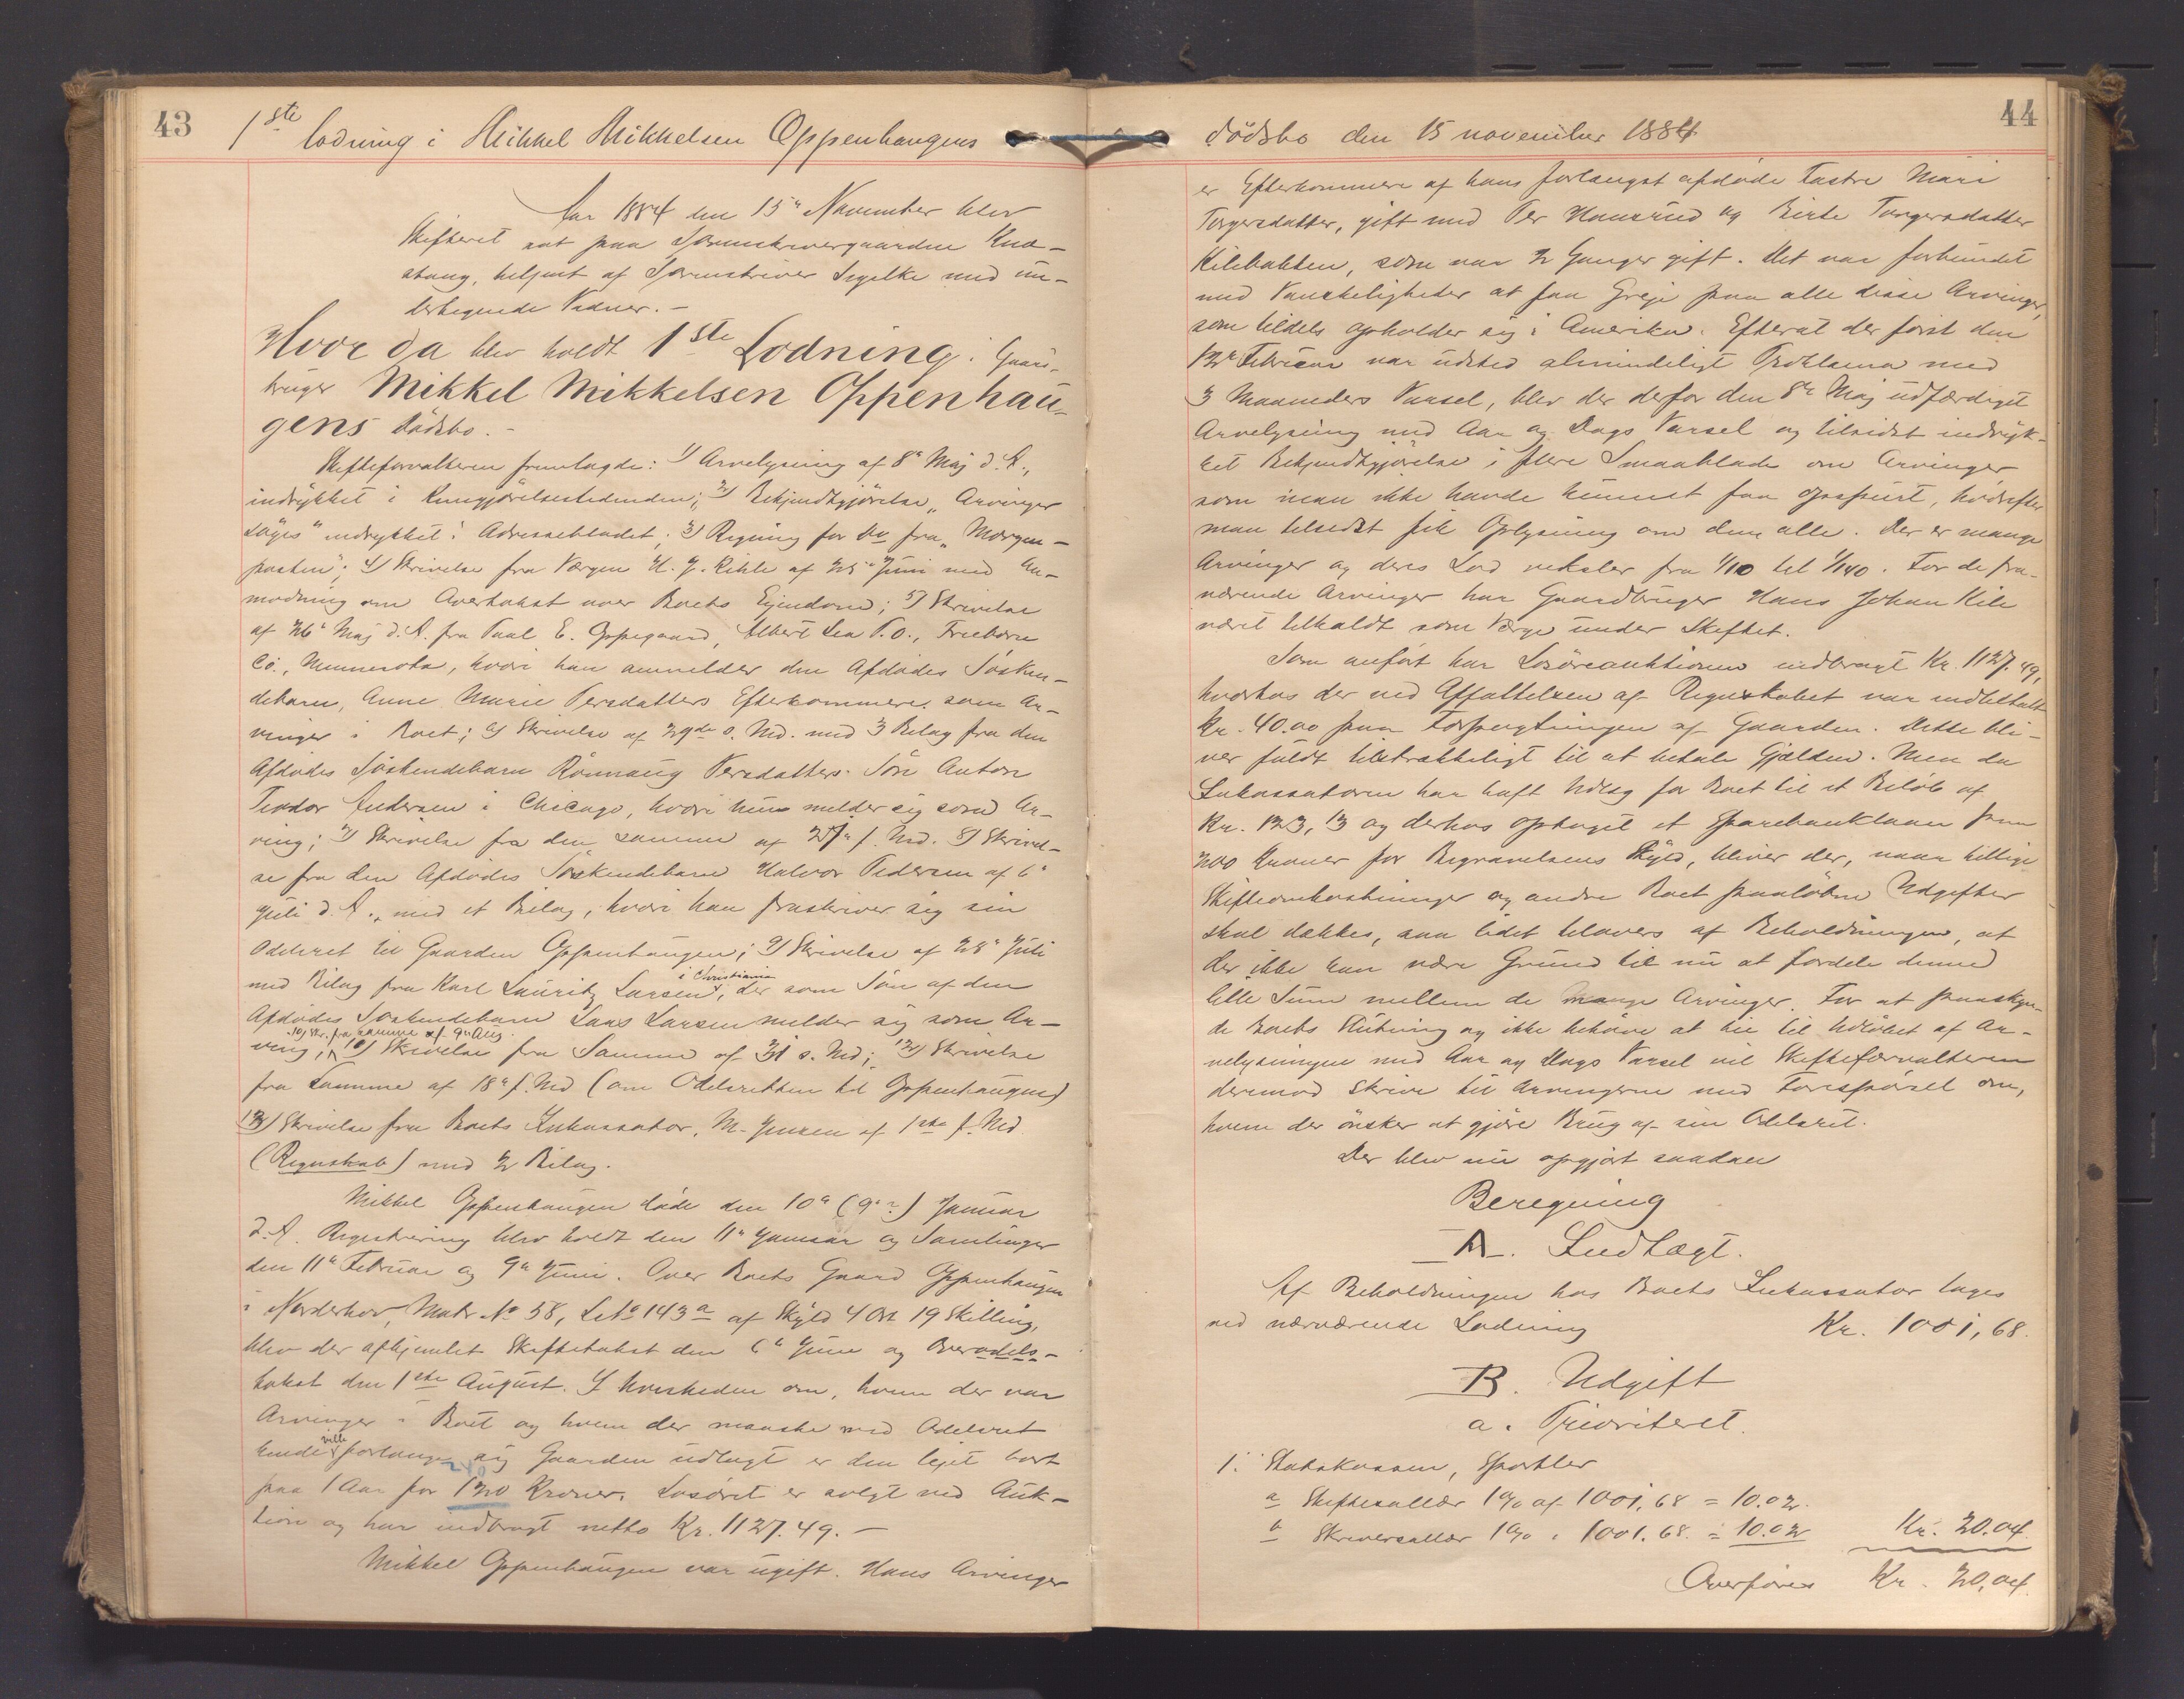 43
1ste lodning i Mikkel Mikkelsen Oppenhaugens
Aar 1884 den 15de November blev
Skifteret sat paa Sorenskrivergaarden Kna-
stang, betjent af Sorenskriver Segelke med un-
dertegnede Vidner.-
Hvor da blev holdt 1ste Lodning i Gaard-
bruger Mikkel Mikkelsen Oppenhau-
gens Dödsbo.-
Skifteforvalteren fremlagde: 1) Arvelysning af 8de Maj d. A.,
indrykket i Kungjörelsestidenden; 2) Bekjendtgjörelse „Arvinger
söges" indrykket i Adressebladet; 3) Regning for do fra „Morgen-
posten"; 4) Skrivelse fra Værgen H. J. Kihle af 25de Juni med An-
modning om Overtakst over Boets Ejendom; 5) Skrivelse
af 26de Maj d. A. fra Paul E. Oppegaard, Albert Lea P.O., Freeborn
Co., Minnesota, hvori han anmelder den Afdödes Sösken-
debarn, Anne Marie Persdatters Efterkommere, som Ar-
vinger i Boet; 6) Skrivelse af 29de s. Md. med 3 Bilag fra den
Afdödes Söskendebarn Rönnaug Persdatters Sön Anton
Teodor Andersen i Chicago, hvori han melder sig som Ar-
ving; 7) Skrivelse fra den samme af 27de f. Md. 8) Skrivel-
se fra den Afdödes Söskendebarn Halvor Pedersen af 6te
Juli d. A., med et Bilag, hvori han fraskriver sig sin
Odelsret til Gaarden Oppenhaugen; 9) Skrivelse af 28de Juli
med Bilag fra Karl Lauritz Larsen i Christiania, der som Sön af den
Afdödes Söskendebarn Lars Larsen melder sig som Ar-
10) Skr. fra samme af 9de Aug.
ving; 11) Skrivelse fra Samme af 31 s. Md; 12) Skrivelse
fra Samme af 18de f. Md (om Odelsretten til Oppenhaugen)
13) Skrivelse fra Boets Inkassator, M. Jensen af 1ste f. Md
(Regnskab) med 2 Bilag.
Mikkel Oppenhaugen döde den 10de (9de?) Januar
d. A. Registrering blev holdt den 11te Januar og Samlinger
den 11te Februar og 9de Juni. Over Boets Gaard Oppenhaugen
i Norderhov, Matr. No 58, Lbn 143a af Skyld 4 Ort 19 Skilling,
blev der afhjemlet Skiftetakst den 6te Juni og Overodels-
takst den 1ste August. I Uvisheden om, hvem der var
Arvinger i Boet og hvem der maaske med Odelsret
kunde ville forlange sig Gaarden udlagt er den lejet bort
210
paa 1 Aar for 120 Kroner. Lösöret er solgt ved Auk-
tion og har indbragt netto Kr. 1127.49.-
Mikkel Oppenhaugen var ugift. Hans Arvinger
44
dödsbo den 15 november 1884
er Efterkommere af hans forlængst afdöde Fastre Mari
Torgersdatter, gift med Per Hansrud og Birte Torgersdatter
Kilebakken, som var 2 Ganger gift. Det var forbundet
med Vanskeligheder at faa Greje paa alle disse Arvinger,
som tildels opholder sig i Amerika. Efterat der först den
12te Februar var udsted almindeligt Proklama med
3 Maaneders Varsel, blev der derfor den 8de Maj udfærdiget
Arvelysning med Aar og Dags Varsel og tilsidst indryk-
ket Bekjendtgjörelse i flere Smaablade om Arvinger
som man ikke havde kunnet faa opspurt, hvorefter
man tilsidst fik Oplysning om dem alle. Der er mange
Arvinger og deres Lod veksler fra 1/10 til 1/140. For de fra-
værende Arvinger har Gaardbruger Hans Johan Kile
været tilkaldt som Værge under Skiftet.
Som anfört har Lösöreauktionen indbragt Kr. 1127.49,
hvorhos der ved Affattelsen af Regnskabet var indbetalt
Kr. 40.00 paa Forpagtningen af Gaarden. Dette bli-
ver fuldt tilstrækkeligt til at betale Gjælden. Men da
Inkassatoren har haft Udlæg for Boet til et Belöb af
Kr. 123,13 og derhos optaget et Sparebanklaan paa
200 Kroner for Begravelsens Skyld, bliver der, naar tillige
Skifteomkostninger og andre Boet paalöbne Udgifter
skal dækkes, saa lidet tilovers af Beholdningen, at
der ikke kan være Grund til nu at fordele denne
lille Sum mellem de mange Arvinger. For at paaskyn-
de Boets Slutning og ikke behöve at bie til Udlöbet af Ar-
velysningen med Aar og Dags Varsel vil Skifteforvalteren
derimod skrive til Arvingerne med Forespörsel om,
hvem der önsker at gjöre Brug af sin Odelsret.
Der blev nu opgjort saadan
Beregning
A. Indtægt.
Af Beholdningen hos Boets Inkassator tages
ved nærværende Lodning Kr. 1001,68.
B. Udgift
a. Prioriteret.
1. Statskassen, Sportler
a Skiftesallær 1% af 1001,68 = 10.02.
b Skriversallær 1% " 1001.68. = 10.02 Kr. 20.04
Overföres Kr. 20,04.